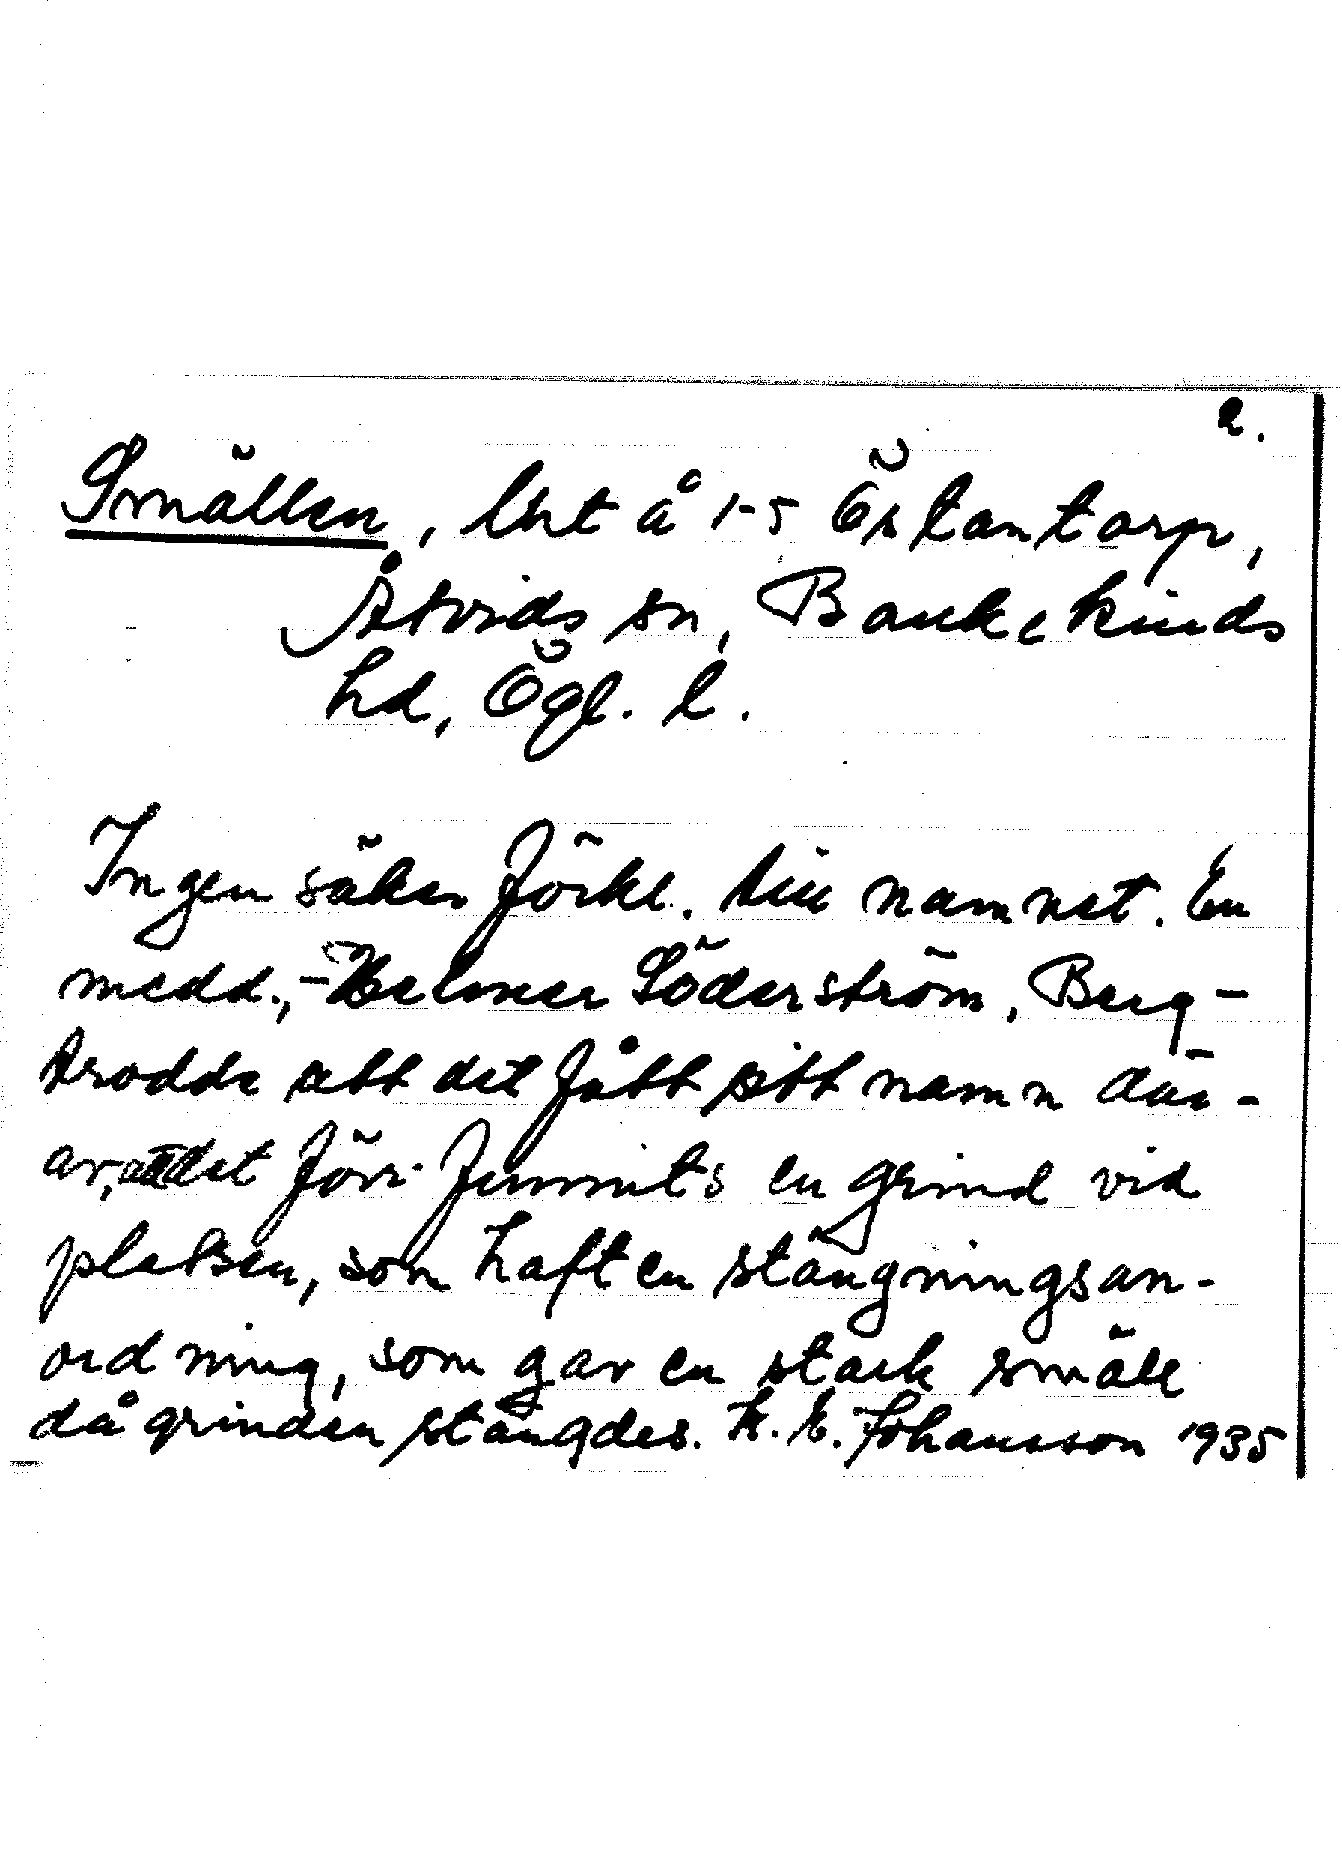 2.
Smällen, lht å 1-5 Östantorp,
Åtvids sn, Bankekinds
hd, Ögl. l.
Ingen säker förkl. till namnet. En
medd., - Helmer Söderström, Berg -
trodde att det fått sitt namn där-
av, att det förr funnits en grind vid
platsen, som haft en stängningsan-
ordning, som gav en stark smäll
då grinden stängdes. K. E. Johansson 1935